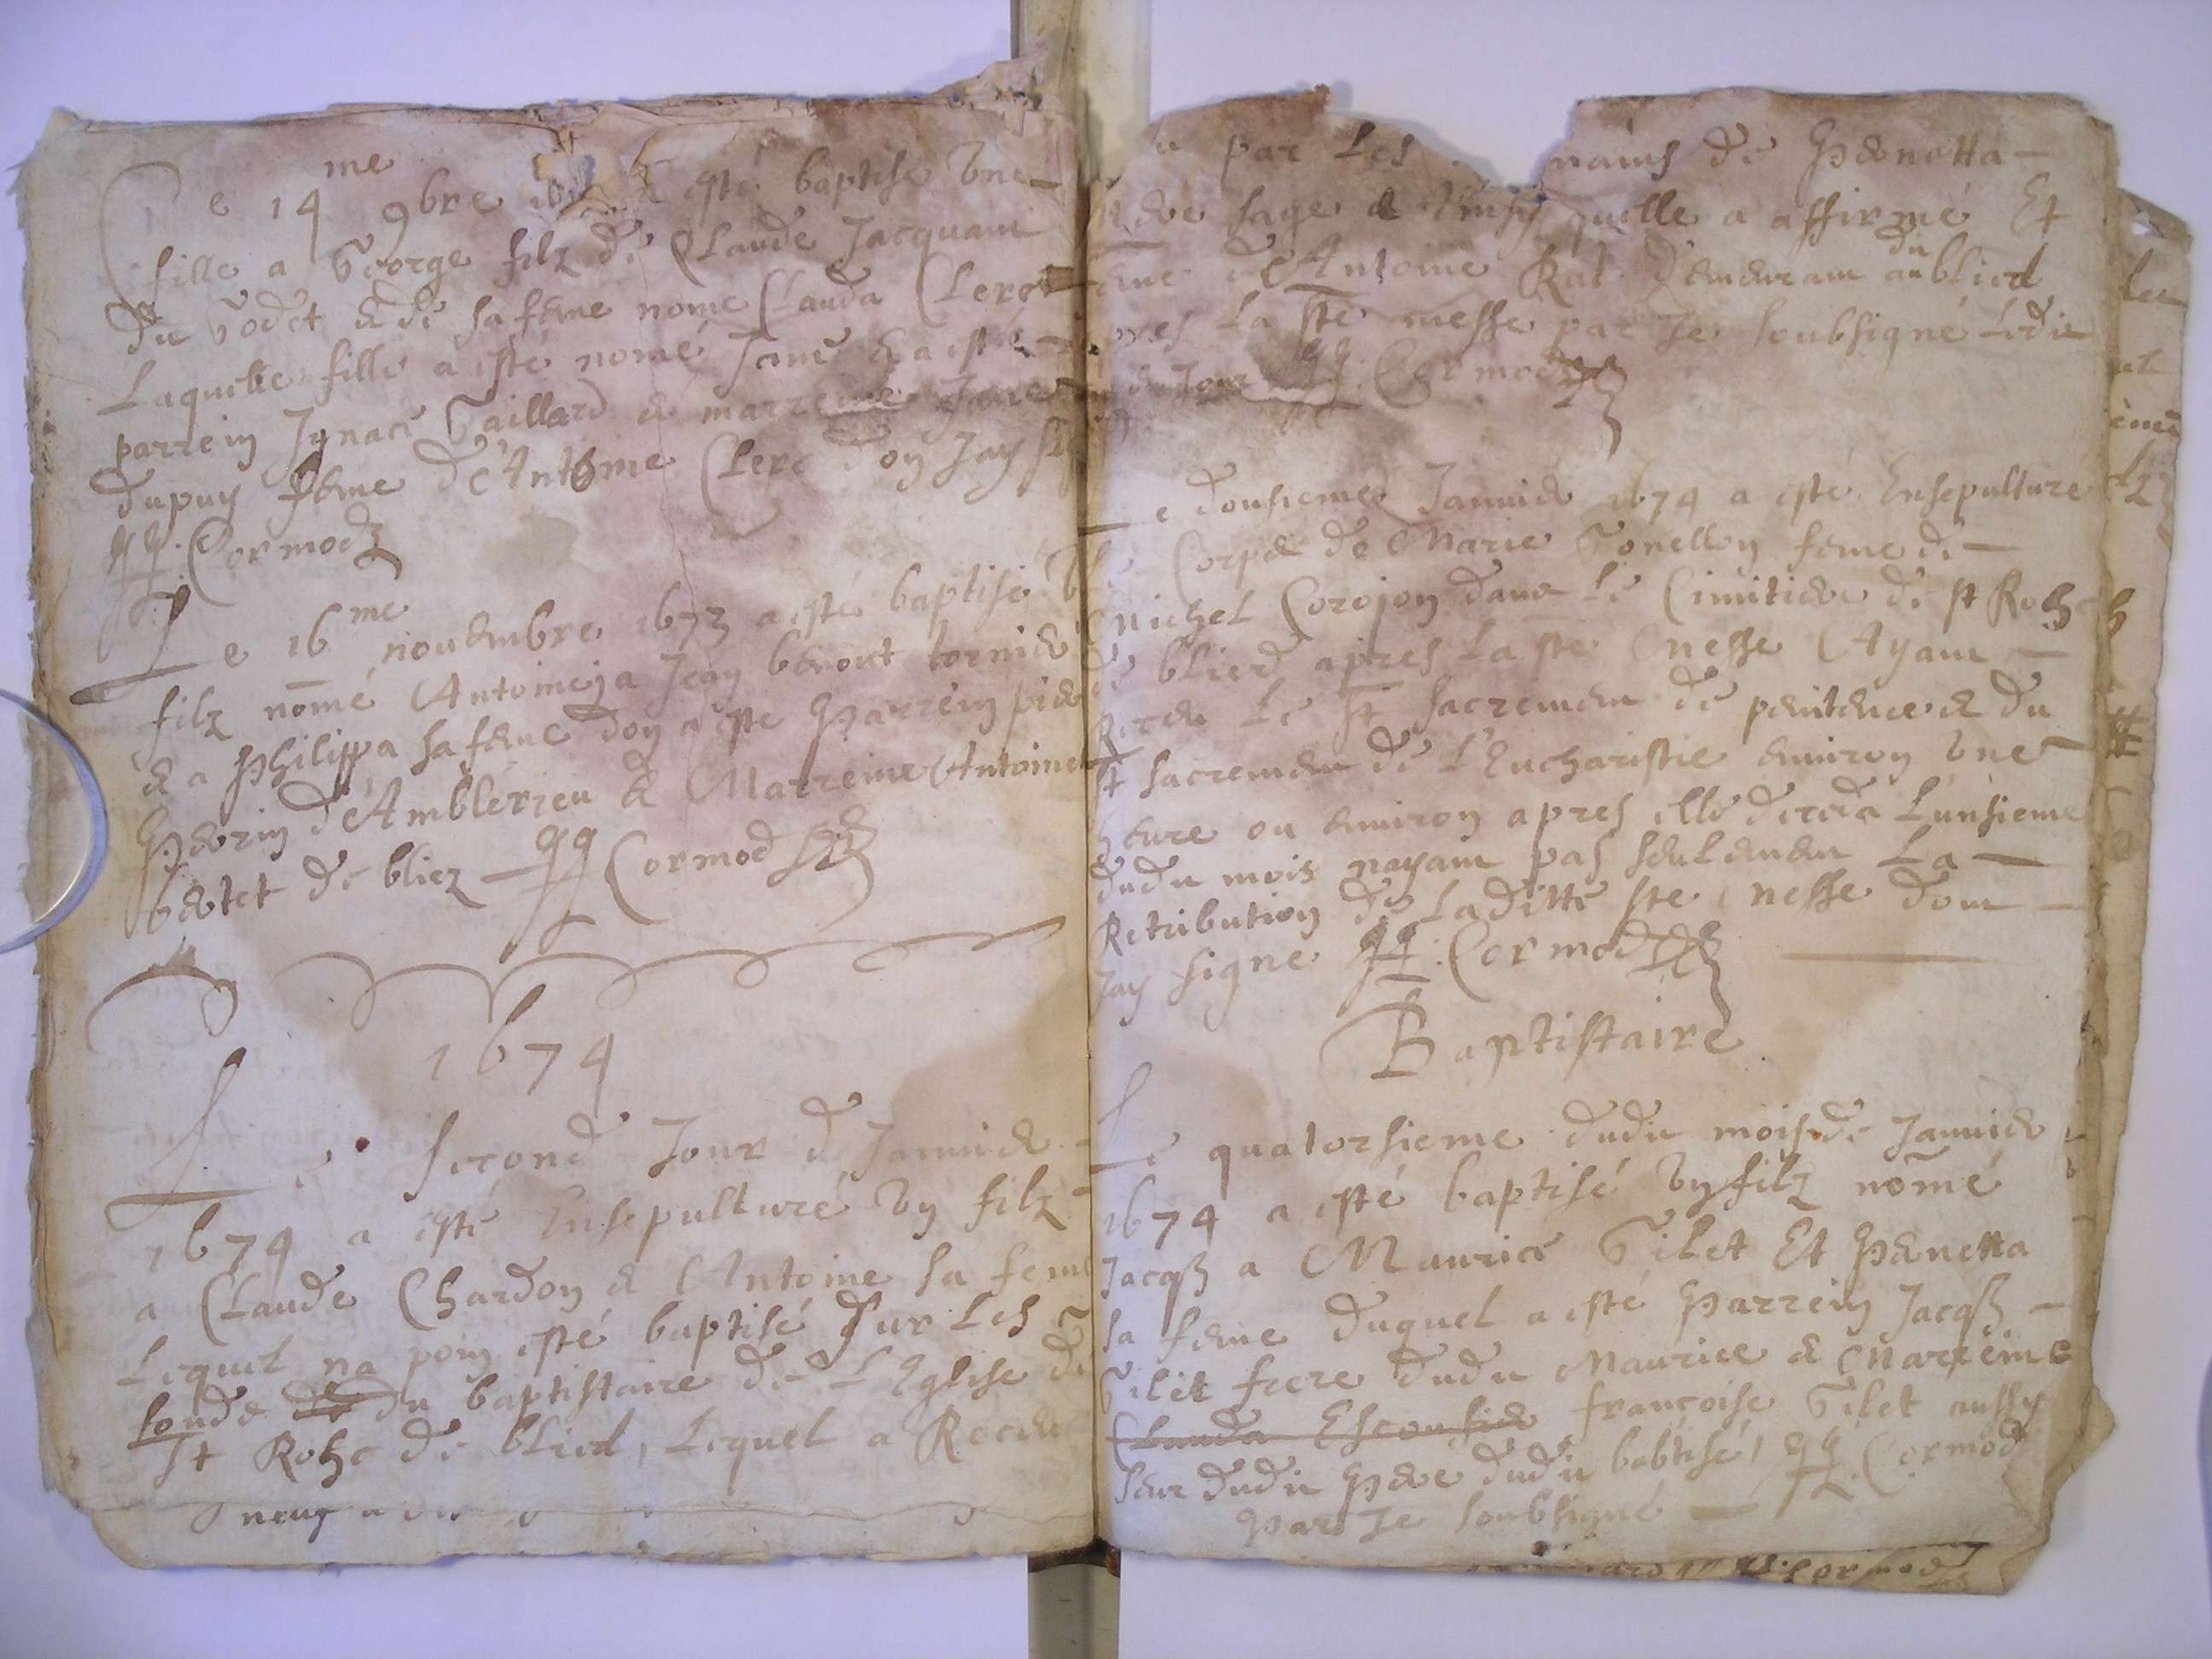 Le 14me 9bre esté baptisé Une
fille a George filz de Claude Jacquam
du Godet & de sa feme nome Clauda Clerc
Laquelle fille a esté nomé Jane & a esté
parrein Jgnace Gaillard & marreine Jane
dupuy feme d'Antoine Clerc don Jay
Cormod
Le 16me nouembre 1673 a esté baptisé
filz nomé Antoine a Jean benont tornier
& a Philippa sa feme don a este Parrein
d'Amblerieu & Marreine Antoine
de bliez Cormod
1674
Le second Jour de Januier
1674 a esté Ensepulturé Un filz
a Claude Chardon & Antoine sa feme
Lequel na poin esté baptisé sur Les
fonds de du baptistaire de L'Eglise de
St Rohc de blied, Lequel a Receu
par Les mains de Penetta
sage & quelle a affirmé Et
feme d'Antoine Rat demeuram au du blied
La ste messe par Je soubsigné Ledit
Jour Cormod
Le dousieme Januier 1674 a esté Ensepulturé
Le Corps de Marie Gonellon feme de
Michel Corojon dans Le Cimitiere de st Rohc
de blied apres La ste Messe Ayam
Receu Le St sacremem de penitence & du
st sacremem de L'Eucharistie enuiron Une
heure ou enuiron apres elle deceda L'unsieme
dudit mois nayam pas seulemem La
Retribution de Laditte ste Messe dom
Jay signe Cormod
Baptistaire
Le quatorsieme dudit mois de Januier
1674 a esté baptisé Un filz nomé
Jacqs a Maurice Gilet Et Penetta
sa feme duquel a esté Parrein Jacqs
Gilet frere dudit Maurice & Marreine
Clauda françoise Gilet aussy
seur dudit Pere dudit babtisé, Cormod
Par Je soubsigné